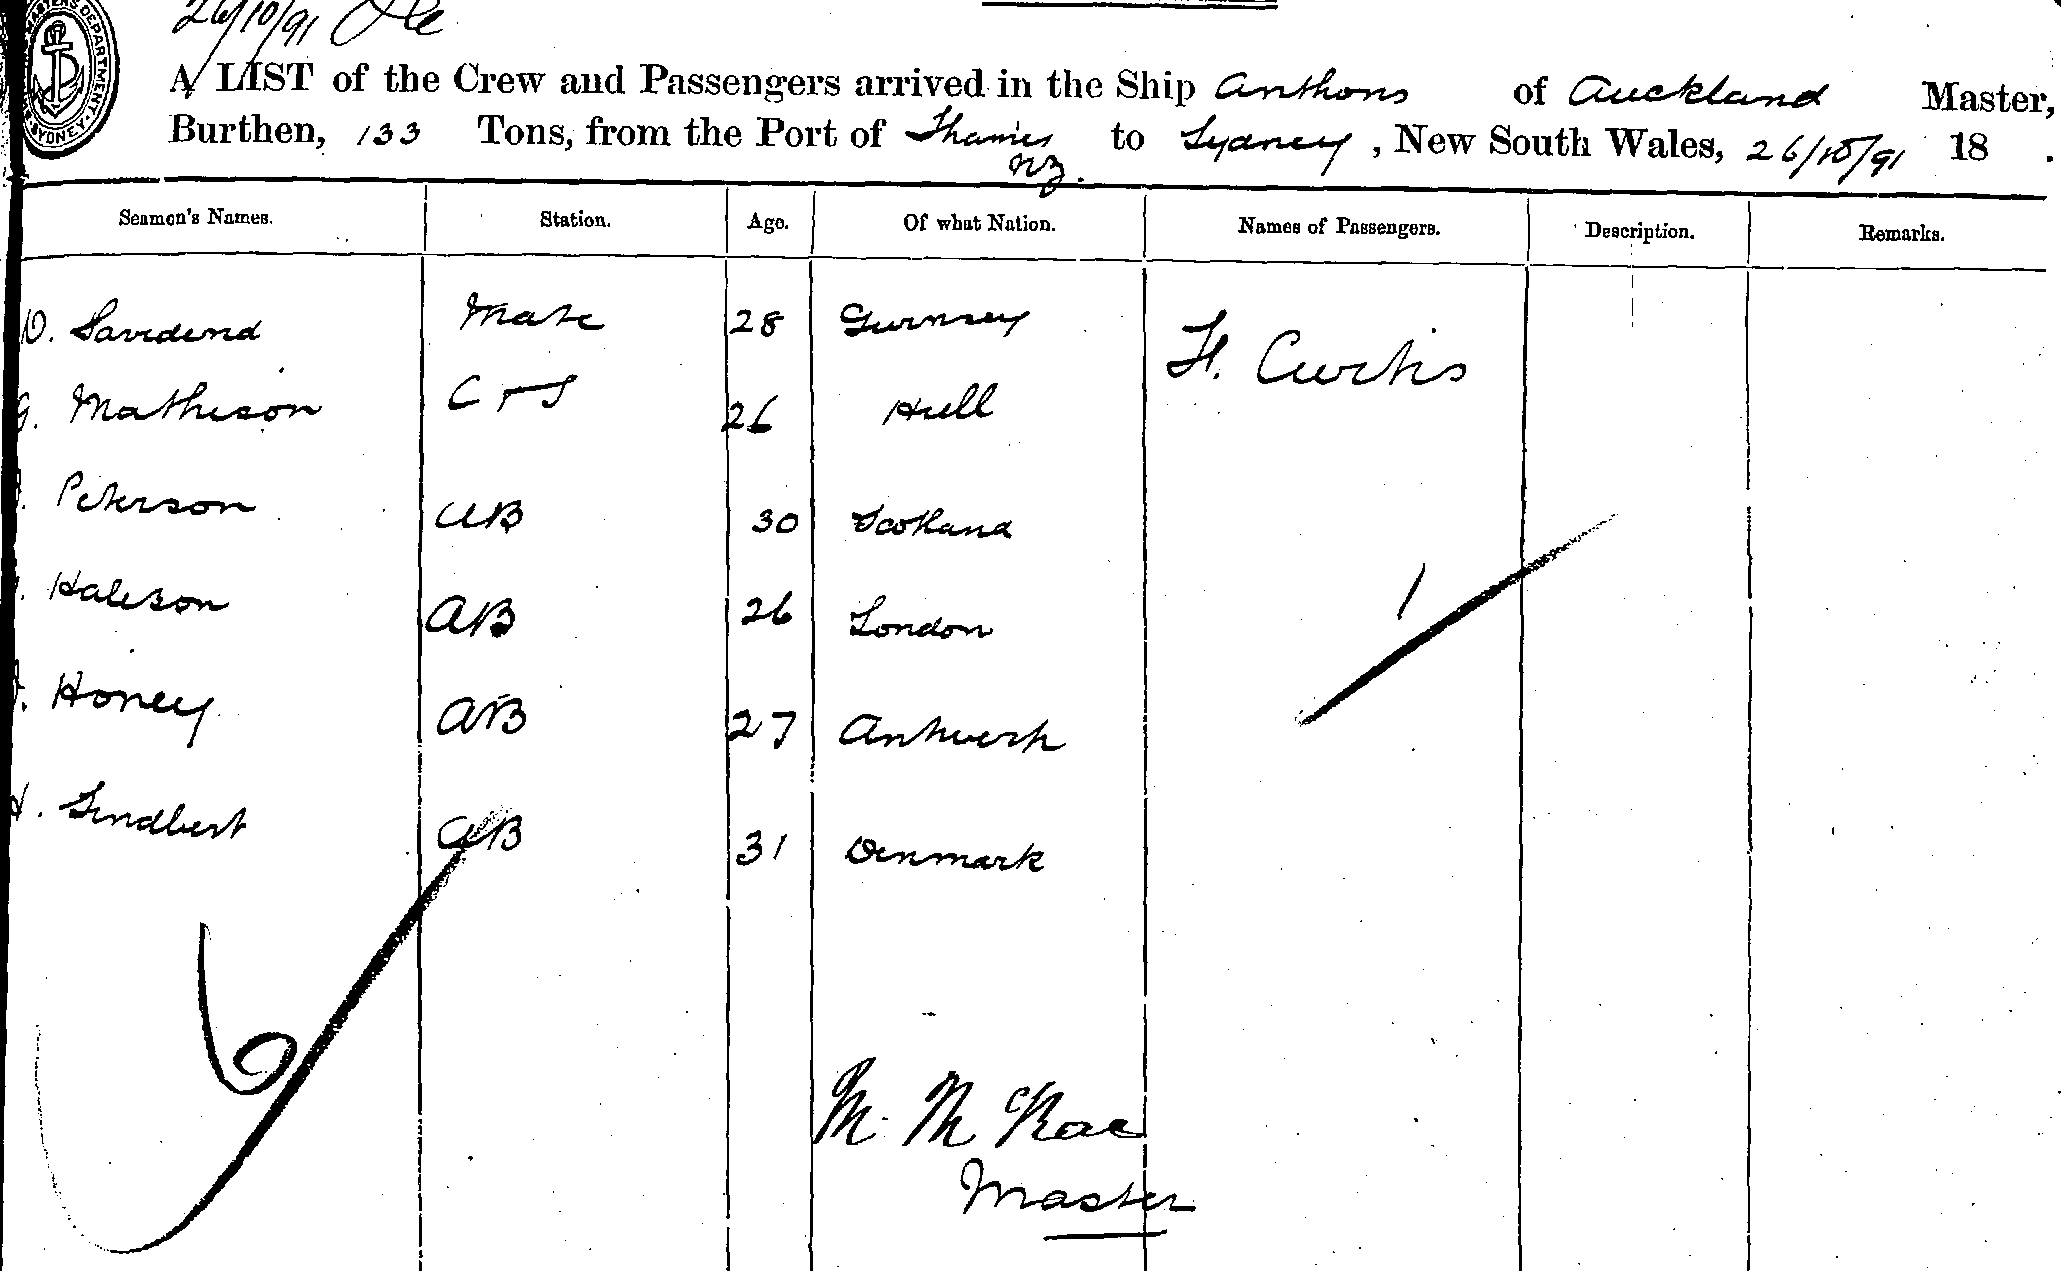 26/10/91
A LIST of the Crew and Passengers arrived in the Ship Anthons of Auckland Master,
Burthen, 133 Tons, from the Port of Thames to Sydney, New South Wales, 26/10/91 18 .
NZ.
MASTERS DEPARTMENT SYDNEY
Seamen's Names. Station. Age. Of what Nation. Names of Passengers. Description. Remarks.
D. Mate 28 Gurnsey H. Curtis
G. Matheson C & S 26 Hull
Peterson AB 30 Scotland
AB 26 London
Honey AB 27 Antwerp
H. AB 31 Denmark
1
6
M. McRae
Master